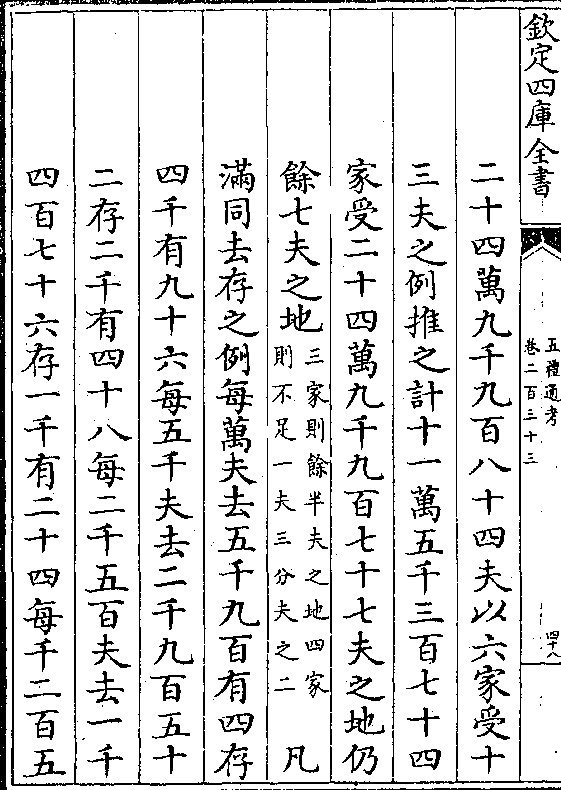 欽定四庫全書
五禮通考
卷二百三十三
四十八
二十四萬九千九百八十四夫以六家受十
三夫之例推之計十一萬五千三百七十四
家受二十四萬九千九百七十七夫之地仍
餘七夫之地三家則餘半夫之地四家則不足一夫三分夫之二凡
滿同去存之例每萬夫去五千九百有四存
四千有九十六每五千夫去二千九百五十
二存二千有四十八每二千五百夫去一千
四百七十六存一千有二十四每千二百五